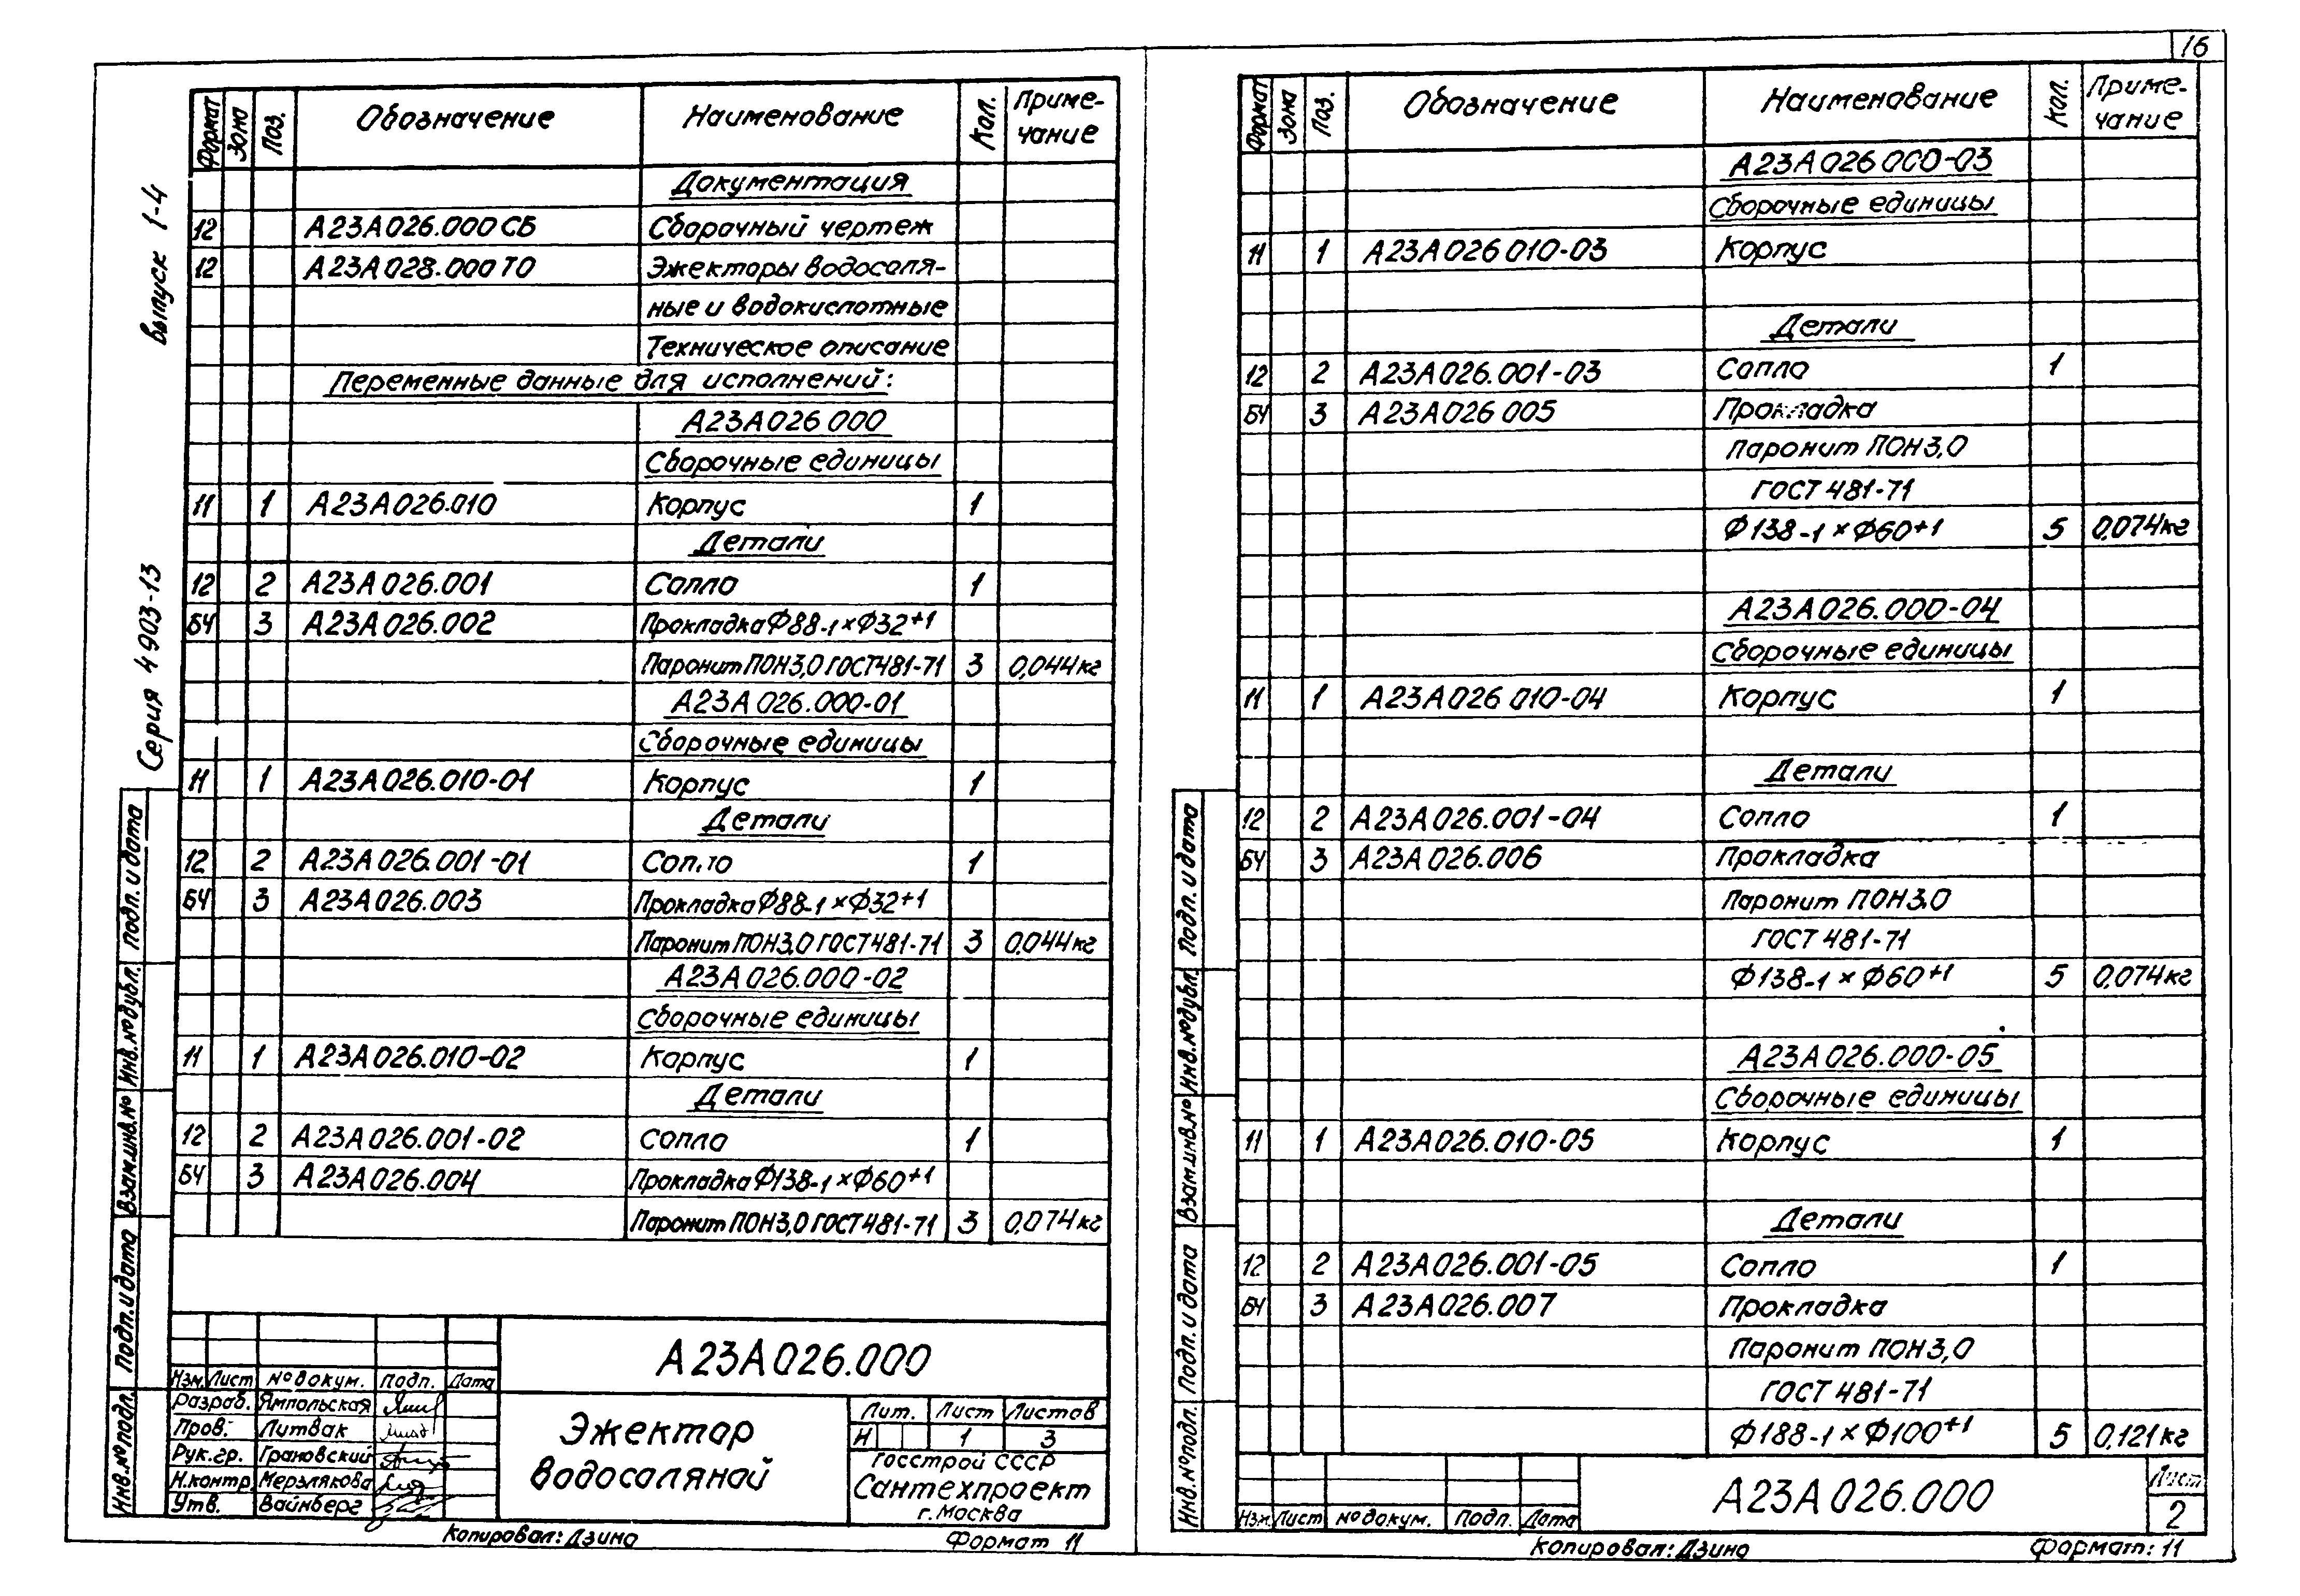 16
Серия 4903-13 выпуск 1-4
Формат Зона Поз. Обозначение Наименование Кол. Приме-
чание
Документация
12 А23А026.000СБ Сборочный чертеж
12 А23А028.000ТО Эжекторы водосоля-
ные и водокислотные
Техническое описание
Переменные данные для исполнений:
А23А026 000
Сборочные единицы
11 1 А23А026.010 Корпус 1
Детали
12 2 А23А026.001 Сопло 1
БЧ 3 А23А026.002 Прокладка Ф88-1×Ф32+1
Паронит ПОН3,0 ГОСТ481-71 3 0,044кг
А23А026.000-01
Сборочные единицы
11 1 А23А026.010-01 Корпус 1
Детали
12 2 А23А026.001-01 Сопло 1
БЧ 3 А23А026.003 Прокладка Ф88-1×Ф32+1
Паронит ПОН3,0 ГОСТ481-71 3 0,044кг
А23А026.000-02
Сборочные единицы
11 1 А23А026.010-02 Корпус 1
Детали
12 2 А23А026.001-02 Сопло 1
БЧ 3 А23А026.004 Прокладка Ф138-1×Ф60+1
Паронит ПОН3,0 ГОСТ481-71 3 0,074кг
Инв.№подл. Подп.и дата Взам.инв.№ Инв.№дубл. Подп.и дата
А23А026.000
Изм. Лист № докум. Подп. Дата
Разраб. Ямпольская
Пров. Литвак
Рук.гр. Грановский
Н.контр. Мерзлякова
Утв. Вайнберг
Эжектор
водосоляной
Лит. Лист Листов
И 1 3
Госстрой СССР
Сантехпроект
г.Москва
Копировал: Дзино Формат 11
Формат Зона Поз. Обозначение Наименование Кол. Приме-
чание
А23А026 000-03
Сборочные единицы
11 1 А23А026 010-03 Корпус
Детали
12 2 А23А026.001-03 Сопло 1
БЧ 3 А23А026 005 Прокладка
Паронит ПОН3,0
ГОСТ 481-71
Ф138-1×Ф60+1 5 0,074кг
А23А026.000-04
Сборочные единицы
11 1 А23А026 010-04 Корпус 1
Детали
12 2 А23А026.001-04 Сопло 1
БЧ 3 А23А026.006 Прокладка
Паронит ПОН3.0
ГОСТ 481-71
Ф138-1×Ф60+1 5 0,074кг
А23А026.000-05
Сборочные единицы
11 1 А23А026.010-05 Корпус 1
Детали
12 2 А23А026.001-05 Сопло 1
БЧ 3 А23А026.007 Прокладка
Паронит ПОН3,0
ГОСТ 481-71
Ф188-1×Ф100+1 5 0,121кг
Инв.№подл. Подп.и дата Взам.инв.№ Инв.№дубл. Подп.и дата
Изм. Лист № докум. Подп. Дата
А23А026.000
Лист
2
Копировал: Дзино Формат: 11